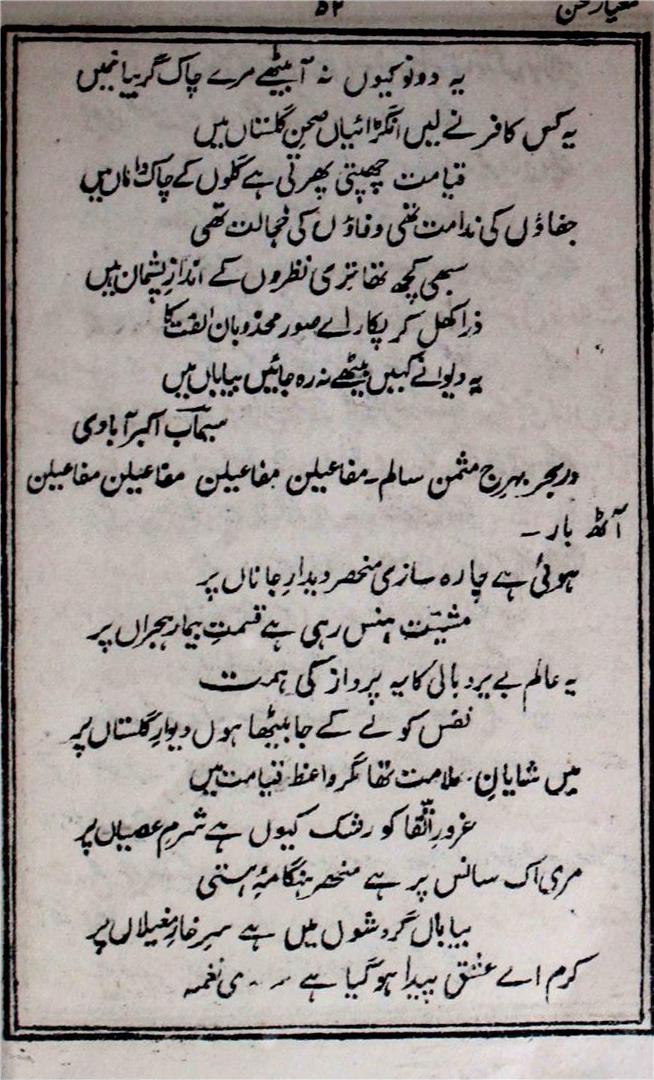 معیار سخن ۵۲
یہ دونو کیوں نہ آ بیٹھے مرے چاک گریباں میں
یہ کس کافر نے لیں انگڑائیاں صحن گلستاں میں
قیامت چھپتی پھرتی ہے گلوں کے چاک داماں میں
جفاؤں کی ندامت تھی وفاؤں کی خجالت تھی
سبھی کچھ تھا تری نظروں کے انداز پشیماں میں
ذرا کھل کر پکار اے صور مجذوبان الفت کا
یہ دیوانے کہیں بیٹھے نہ رہ جائیں بیاباں میں
سیماب اکبر آبادی
در بحر ہزج مثمن سالم۔ مفاعیلن مفاعیلن مفاعیلن مفاعیلن
آٹھ بار ۔
ہوئی ہے چارہ سازی منحصر دیدارِ جاناں پر
مشیّت ہنس رہی ہے قسمتِ بیمار ہجراں پر
یہ عالم بے پر و بالی کا یہ پرواز کی ہمت
قفس کو لے کے جا بیٹھا ہوں دیوارِ گلستاں پر
میں شایانِ ملامت تھا مگر واعظ قیامت میں
غرورِ اتّقا کو رشک کیوں ہے شرمِ عصیاں پر
مری اک سانس پر ہے منحصر ہنگامۂ ہستی
بیاباں گردشوں میں ہے سرِ خارِ مغیلاں پر
کرم اے عشق پیدا ہو گیا ہے ی نغمہ